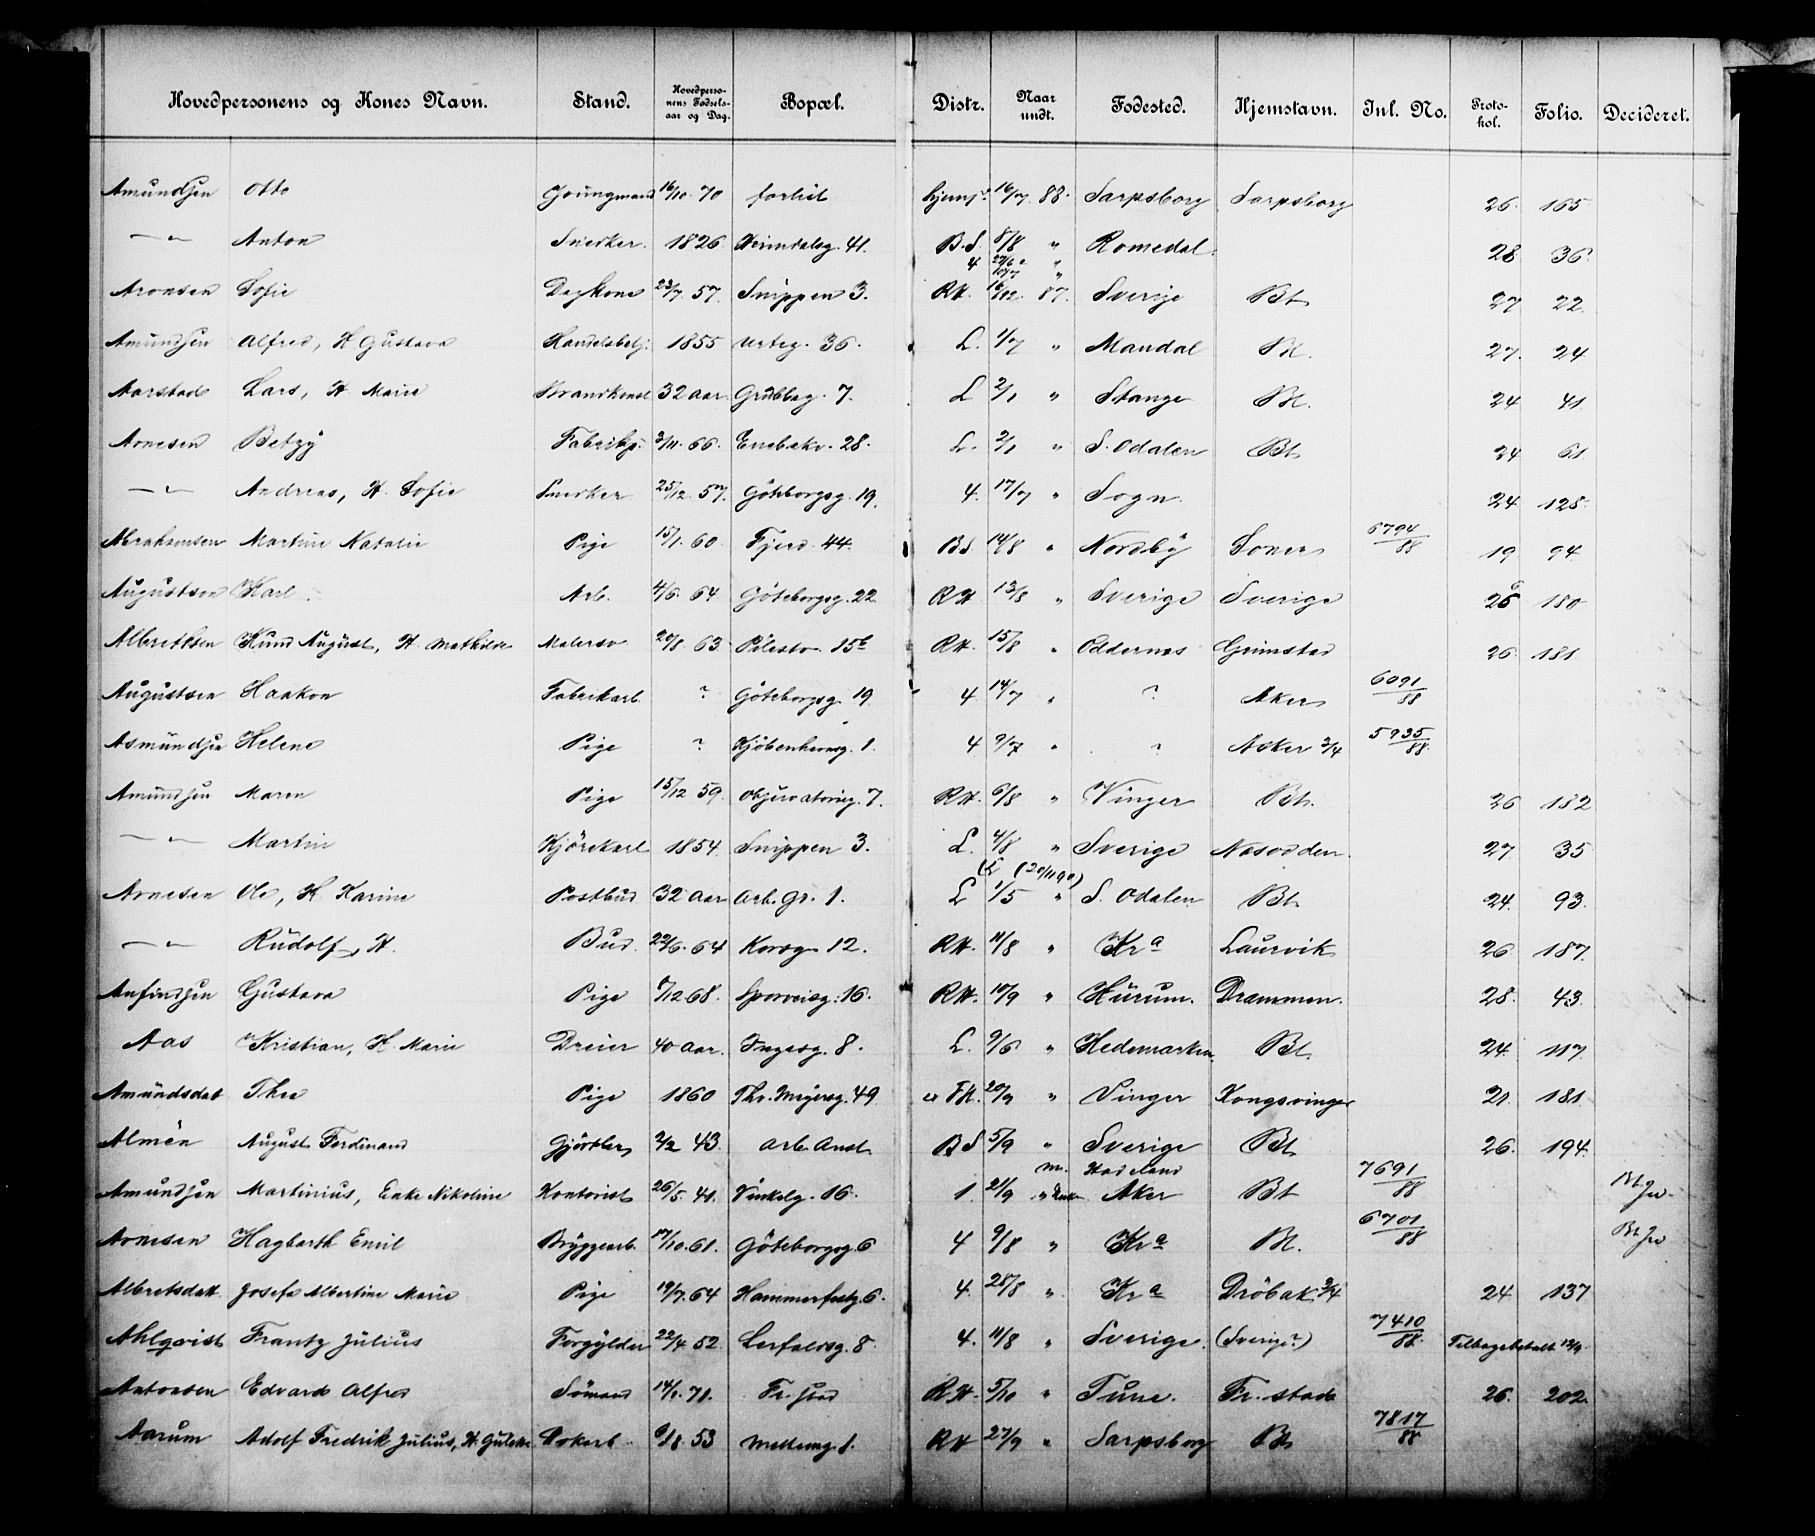 Hovedpersonens og Kones Navn. Stand. Hovedperso-nens Fødsels-aar og Dag. Bopæl. Distr. Naar undt. Fødested. Hjemstavn. Inl. No. Proto-kol. Folio. Decideret.
Amundsen Otto Joungmand 16/10 70 forhist hjemf. 16/7 88. Sarpsborg Sarpsborg 26. 165
—〃— Anton Snedker. 1826 41. B.S. 8/8 〃 Romedal 28 36
4 〃
Aronsen Sofie Dagkone 23/7 57. Snippen 3. RH. 16/12. 87. Sverige Bt 27 22
Amundsen Alfred, H Gustava Handelsbetj. 1855 Urteg. 36. L. 1/7 〃 Mandal Bt. 27. 24
Aarstad Lars, H. Marie Brandkonst 32 aar Grübbeg. 7. L 2/1 〃 Stange Bt. 24 41
Arnesen Betzy Fabrikp. 3/11. 66. Enebakv. 28. L. 2/1 〃 S. Odalen Bt 24 61
—〃— Andreas, H. Sofie Snedker 25/12 57. Göteborgsg. 19. 4. 17/7 〃 Sogn 24 128
Abrahamsen Martine Natalie Pige 15/1. 60. Fjerd. 44. BS 14/8 〃 Nordby Soner 6794/88 19 94
Augustson Karl Arb. 4/6. 64 Göteborgsg. 22 RH 13/8 〃 Sverige Sverige 26 180
Albrethsen Knud August, H. Mathilde Malersv 20/8. 63. Pilestr. 15b RH. 15/8 〃 Oddernes Grimstad 26. 181
Augustsen Haakon Fabrikarb. ? Göteborgsg. 19. 4 14/7 〃 ? Aker 6091/88
Asmundsen Helene Pige ? Kjöbenhavnsg. 1. 4 9/7 〃 ? Asker 2/4 5935/88
Amundsen Maren Pige 15/12 59. Observatorieg. 7. RH. 6/8 〃 Vinger Bt. 26 182
—〃— Martin Kjörekarl 1854. Snippen 3. L. 4/8 〃 Sverige Nesodden. 27 35
Arnesen Ole, H. Karine Postbud 32 aar Arb. Gr. 1. L 1/5 〃 S. Odalen Bt. 24. 93.
—〃— Rudolf, H. Bud. 22/6. 64 Korsg. 12. RH. 11/8 〃 Kra Laurvik 26 187.
Anfindsen Gustava Pige 8/12 68. Sporveisg. 16. RH. 10/9 〃 Hurum. Drammen. 28. 43.
Aas Kristian, H. Marie Dreier 40 aar. Ingesg. 8. L. 9/6 〃 Hedemarken Bt. 24. 117.
Amundsdat Thea Pige 1860 Thv. Meyersg. 49 FH. 20/9 〃 Vinger Kongsvinger 21. 181
Almén August Ferdinand Gjörtler 2/2 43. Arb. Anst. BS 5/9 〃 Sverige Bt 26. 194
Amundsen Martinius, Enke Nikoline Kontorist 26/5. 41. Vinkelg. 16. 1. 21/9 〃 M. Hadeland Aker Bt 7691/88 Bt
Arnesen Hagbarth Emil Bryggearb. 17/10. 61. Göteborgsg. 6 4 9/8 〃 Kra Bt. 6701/88 Bt
Albretsdatt. Josefa Albertine Marie Pige 19/7. 64 Hammerfestg. 6. 4. 28/8 〃 Kra Dröbak 2/4 24. 137
Ahlqvist Frantz Julius Forgylder 22/4 52. Lerfaldsg. 8. 4. 11/8 〃 Sverige. (Sverige?) 7410/88 Tilbagebetalt 12/9
Antonsen Edvard Alfred Sömand 14/1. 71. Fr. stad RH. 5/10 〃 Tune. Fr. stad 26. 202
Aarum Adolf Fredrik Julius, H. Lokarb. 53 Mellemg. 1. RH 27/9 〃 Sarpsborg Bt 7817/88